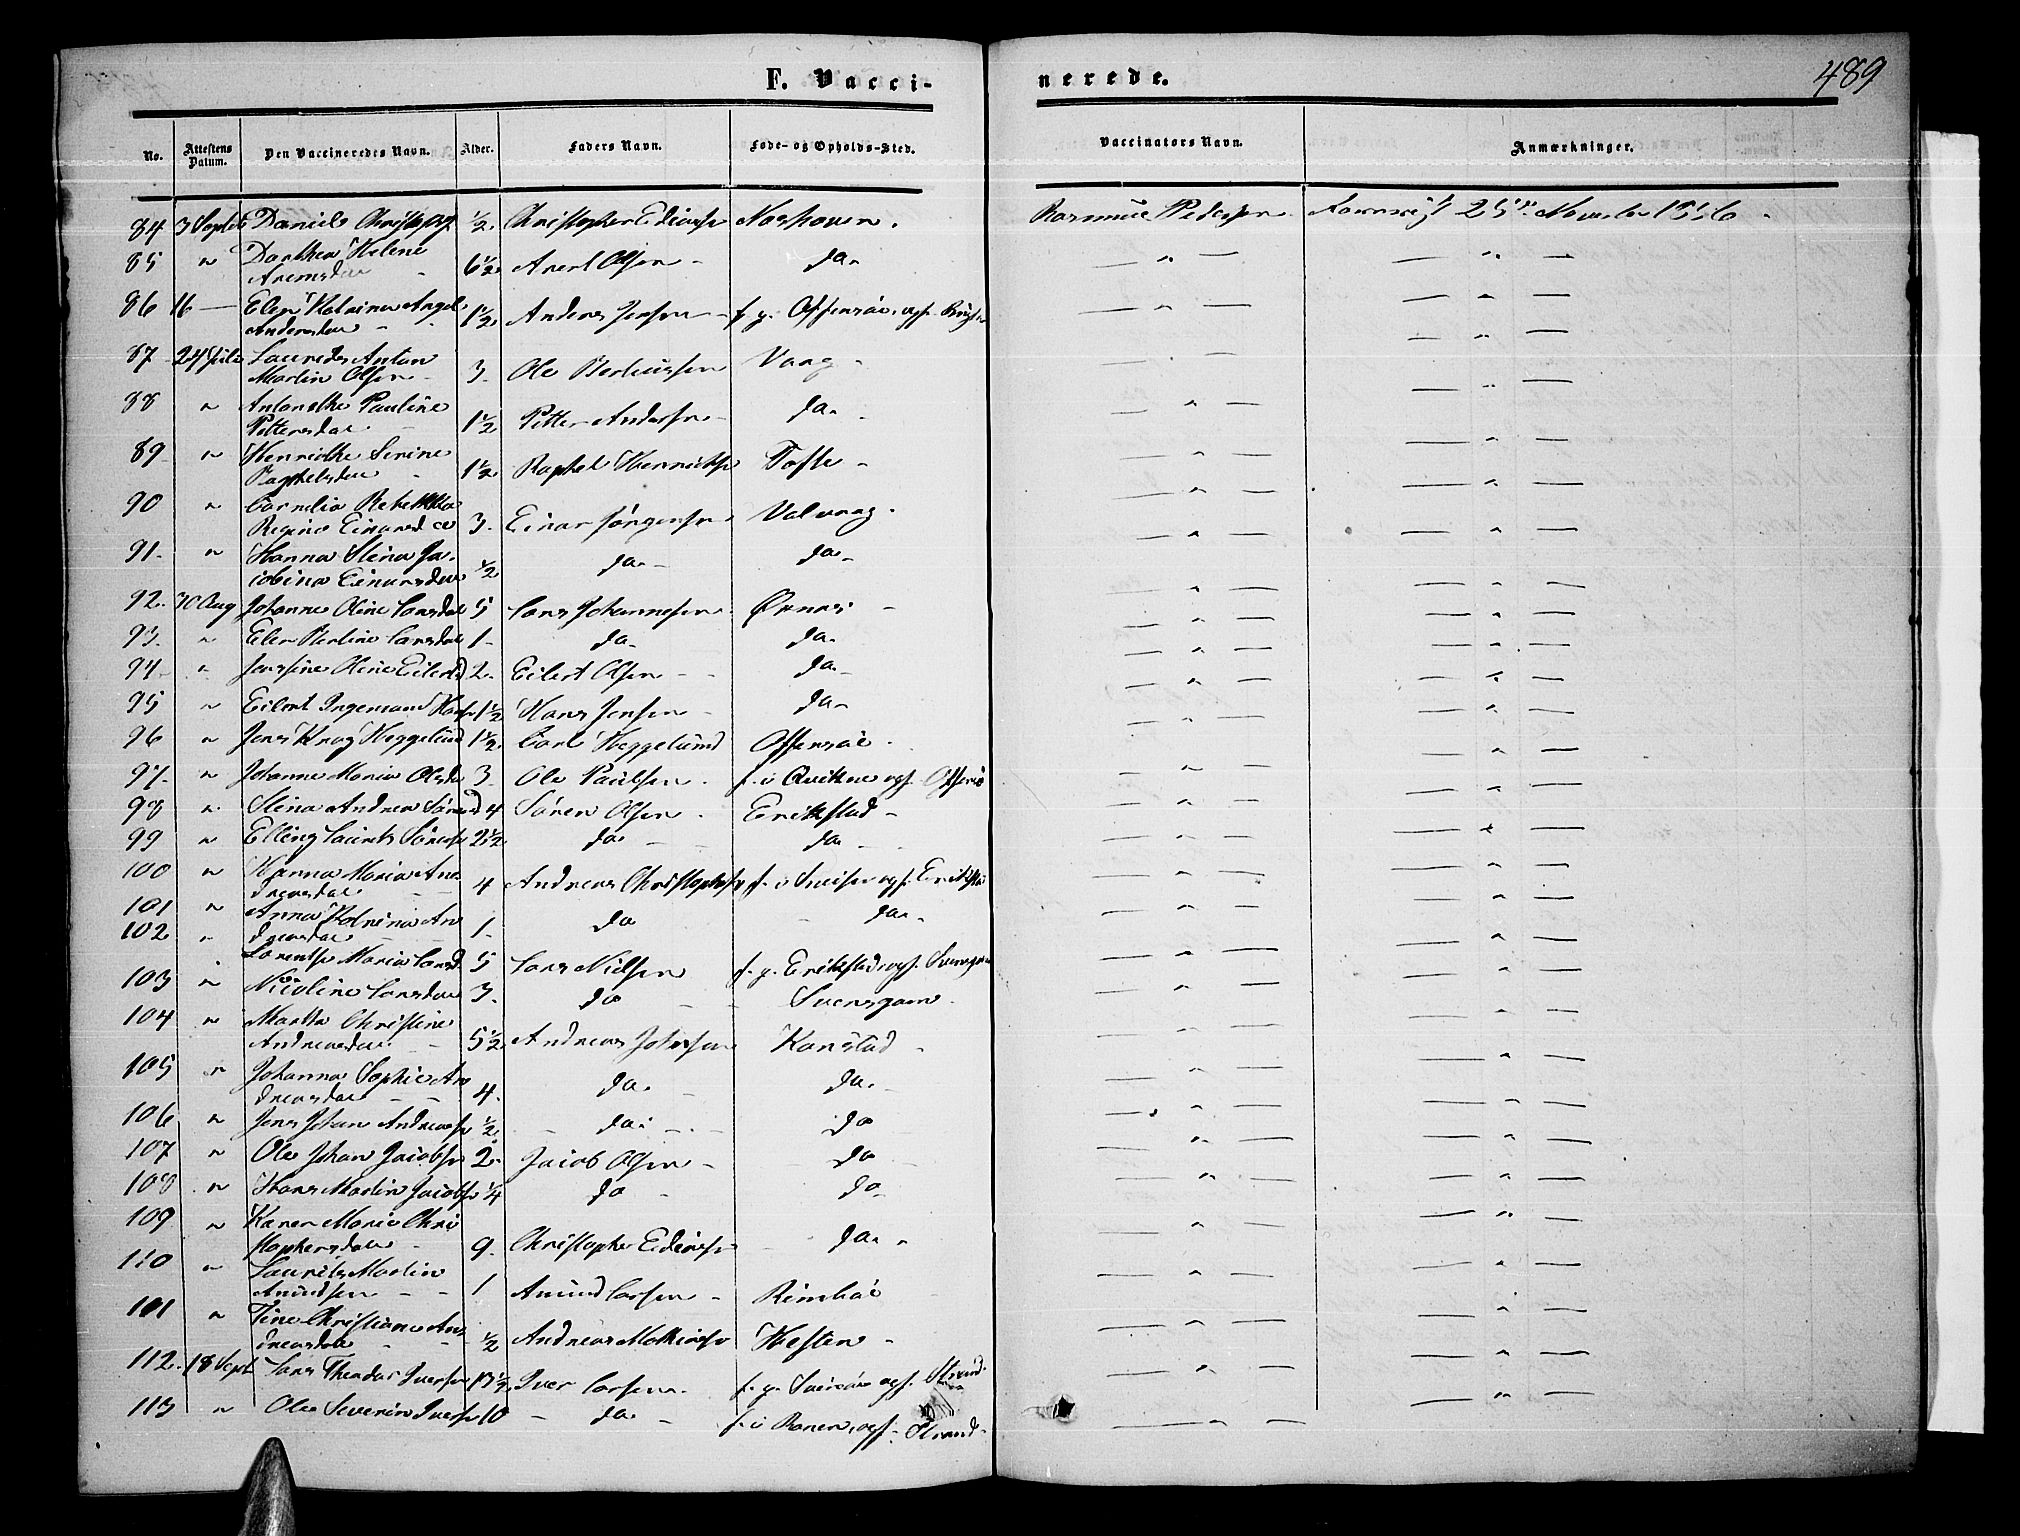 489
F. Vacci-nerede.
No. Attestens Datum. Den Vaccineredes Navn. Alder. Faders Navn. Føde- og Opholds-Sted. Vaccinators Navn. Anmærkninger.
84 3 Septb Daniel ½ Christopher Edinss. Rasmus Pedersen 25de November 1856
85 " Dorthea Helene
Arentsdtr 6½ Arent Olsen do
86 16 — Elen Katrina Angel
Andersdtr 1½ Anders Jensen f. p. Offersøe, opf.
87 24 Juli Laurids Anton
Martin Olsen 3 Ole Vaag
88 " Antonethe Pauline
Pettersdtr 1½ Petter Andersen do
89 " Henriethe Serine
Raphelsdtr 1½ Raphel Henricks. Tofte
90 " Cornelia Rebekka
Regine Einarsd 3 Einar Jørgensen Valvaag
91 " Hanna Stina Ja-
cobina Einarsdtr ½ do do
92 30 Aug Johanne Oline Larsdtr 5 Lars Johannesen Ørnes
93 " Elen Berline Larsdtr 1 do do
94 " Jensine Oline Eilertsd 2 Eilert Olsen do
95 " Eilert Ingemand Hans. 1½ Hans Jensen do
96 " Jens Krag Heggelund 1½ Carl Heggelund Offersøe
97 " Johanne Maria Olsdtr 3 Ole Paulsen f. i opf. Offersø
98 " Stina Andrea Sørensd 4 Søren Olsen Erikstad
99 " Elling Laurits Sørens. 2½ do do
100 " Hanna Maria An-
dreasdtr 4 Andreas Christophers. f. i opf. Erikstad
101 " Anna Katrina An-
102 " dreasdtr 1 do do
" Lorentse Maria Larsd 5 Lars Nielsen f. p. Erikstad, opf.
103 " Nicoline Larsdtr 3 do Svensgam
104 " Martha Christine
Andreasdtr 5½ Andreas Johnsen Kanstad
105 " Johanna Sophie An-
dreasdtr 4 do do
106 " Jens Johan Andreas. ½ do do
107 " Ole Johan Jacobs. 2 Jacob Olsen do
108 " Hans Martin Jacobs. ¼ do do
109 " Karen Maria Chri-
stophersdtr 9 Christopher Edinss. do
110 " Laurits Martin
Amundsen 1 Amund Larsen Rinbøe
101 " Tine Christiane An-
dreasdtr ½ Andreas Mathiass. Hesten
112 18 Sept Lars Theodor Iversen 13½ Iver Larsen f. p. opf. Strand
113 " Ole Severin Ivers. 10 do f. i Ranen, opf. Strand